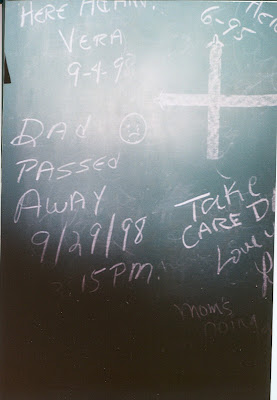 HERE AGAIN.
VERA
9-4-9
6-95
DAD
PASSED
AWAY
9/29/98
15 PM.
TAKE
CARE D
LOVE
MOM'S